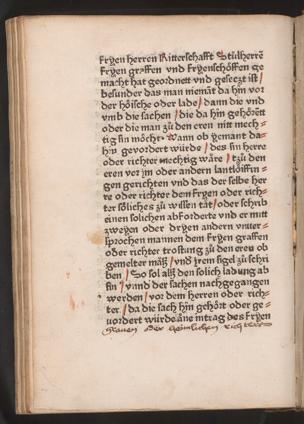 fryen herren Ritterschafft Stůlherrē
fryen graffen vnd fryenschöffen ge
macht hat geordnett vnd geseczt ist /
besunder das man niemāt da hin vor
der höische oder lade / dann die vnd
vmb die sachen / die da hin gehörett
oder die man zů den eren nitt mech=
tig sin möcht. Wann ob yemant da=
hin gevordert würde / des sin herre
oder richter mechtig wäre / tzů den
eren vor im oder andern lantlöiffin=
gen gerichten vnd das der selbe herr
re oder richter dem fryen oder rich=
ter söliches zů wissen tät / oder schrib
einen solichen abforderte vnd er mitt
zweyen oder dryen andern vnuer=
sprochen mannen dem fryen graffen
oder richter trostung zů den eren ob
gemelter mäß / vnd jrem sigel zů schri
ben / So sol allß den solich ladung ab
sin / vnnd der sachen nachgegangen
werden / vor dem herren oder rich=
ter / da die sach hyn gehört oder ge=
uordert würde āne intrag des fryen
grauen oder heimlichen richters